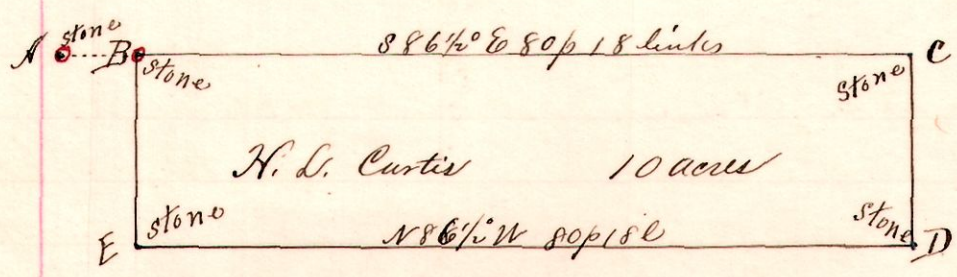 A stone B S 86½° E 80p 18 links C
stone stone
H. L. Curtis 10 acres
stone stone
E N 86½° W 80p 18 l D